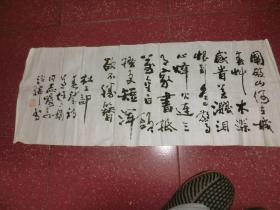 國破山河在城
春艸木深
感時花濺淚
恨別鳥驚
心烽火連三
月家書抵
萬金白頭
搔更短渾
欲不勝簪
杜工部
春望詩